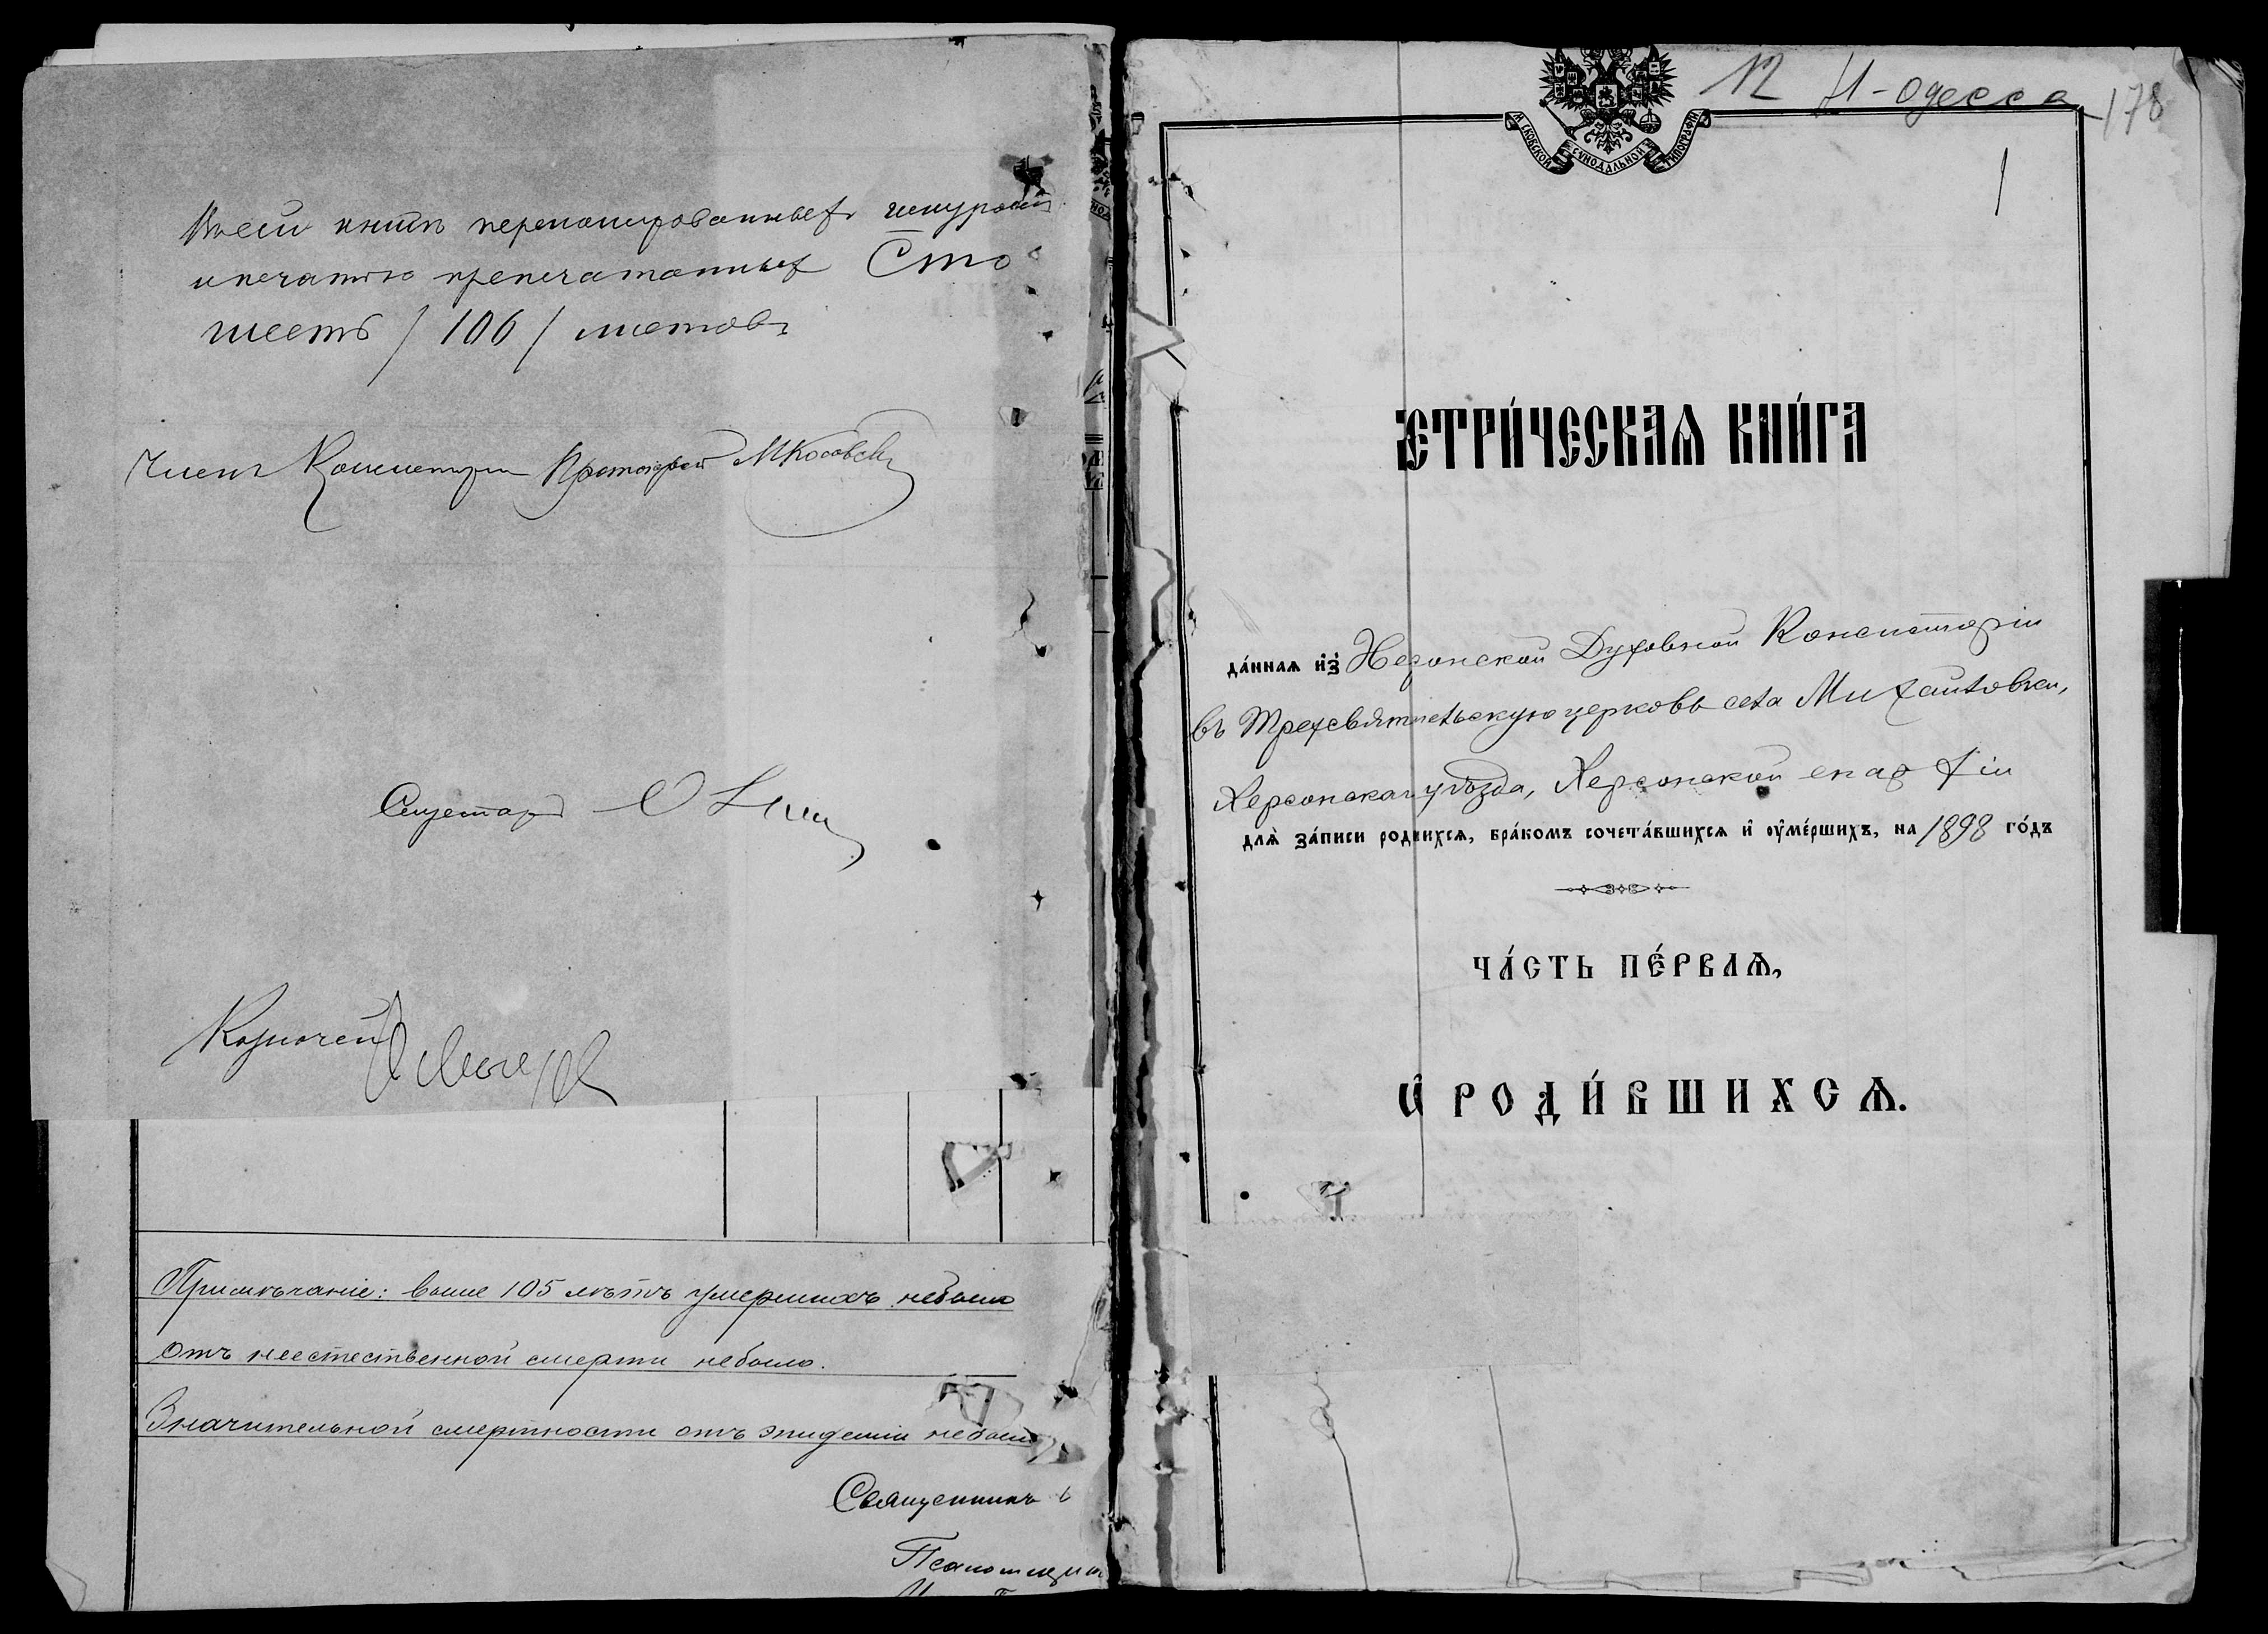 Въ сей книгѣ перенумерованныхъ шнуромъ
и печатью препечатанныхъ Сто
шесть / 106 / листовъ
Членъ Консисторіи Протоіерей
Секретарь
Казначей
Примѣчаніе: выше 105 лѣтъ умершихъ небыло
отъ неестественной смерти небыло.
Значительной смертности отъ эпидеміи небыло
Священникъ
Псаломщик
12 Н-одесса 178
М СКОВСКОЙ СѴНОДАЛЬНОЙ ТИПОГРАФІИ
1
ЕТРИ́ЧЕСКАѦ КНИ́ГА
да́ннаѧ и҆з̾ Херсонской Духовной Консисторіи
въ Трехсвятительскую церковь села Михайловки,
Херсонскаго уѣзда, Херсонской епархіи
длѧ̀ за́писи роди вихсѧ, бра́комъ сочета́вшихсѧ и҆ ᲂу҆ме́ршихъ, на 1898 го́дъ
ЧА́СТЬ ПЕ́РВАѦ,
Ѽ РОДИ́ВШИХСѦ.